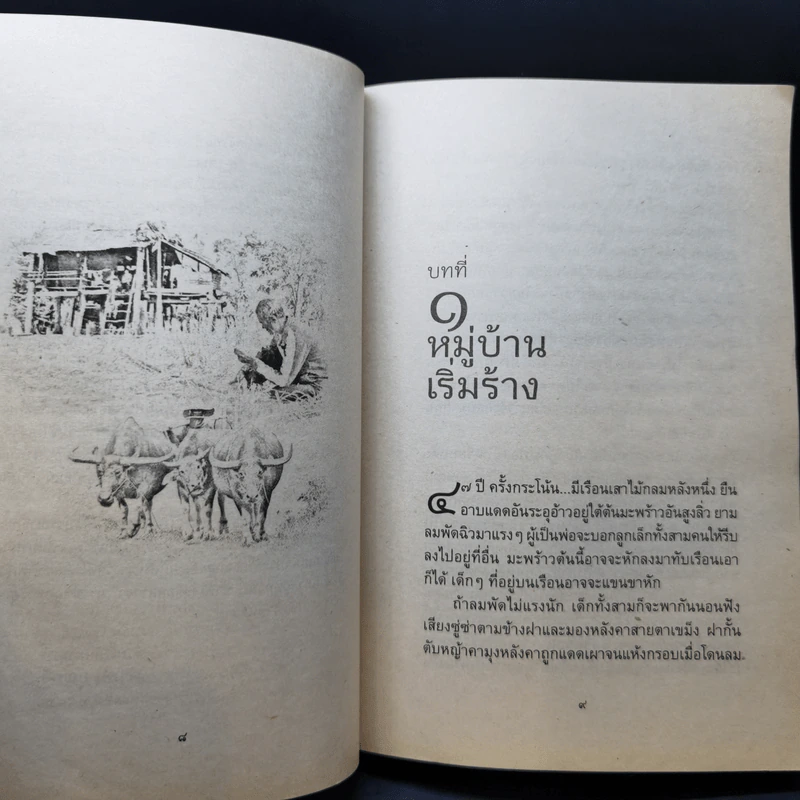 ๘
บทที่
๑
หมู่บ้าน
เริ่มร้าง
๔๗ ปี ครั้งกระโน้น...มีเรือนเสาไม้กลมหลังหนึ่ง ยืน
อาบแดดอันระอุอ้าวอยู่ใต้ต้นมะพร้าวอันสูงลิ่ว ยาม
ลมพัดฉิวมาแรงๆ ผู้เป็นพ่อจะบอกลูกเล็กทั้งสามคนให้รีบ
ลงไปอยู่ที่อื่น มะพร้าวต้นนี้อาจจะหักลงมาทับเรือนเอา
ก็ได้ เด็กๆ ที่อยู่บนเรือนอาจจะแขนขาหัก
ถ้าลมพัดไม่แรงนัก เด็กทั้งสามก็จะพากันนอนฟัง
เสียงซู่ซ่าตามข้างฝาและมองหลังคาสายตาเขม็ง ฝากั้น
ตับหญ้าคามุงหลังคาถูกแดดเผาจนแห้งกรอบเมื่อโดนลม
๙